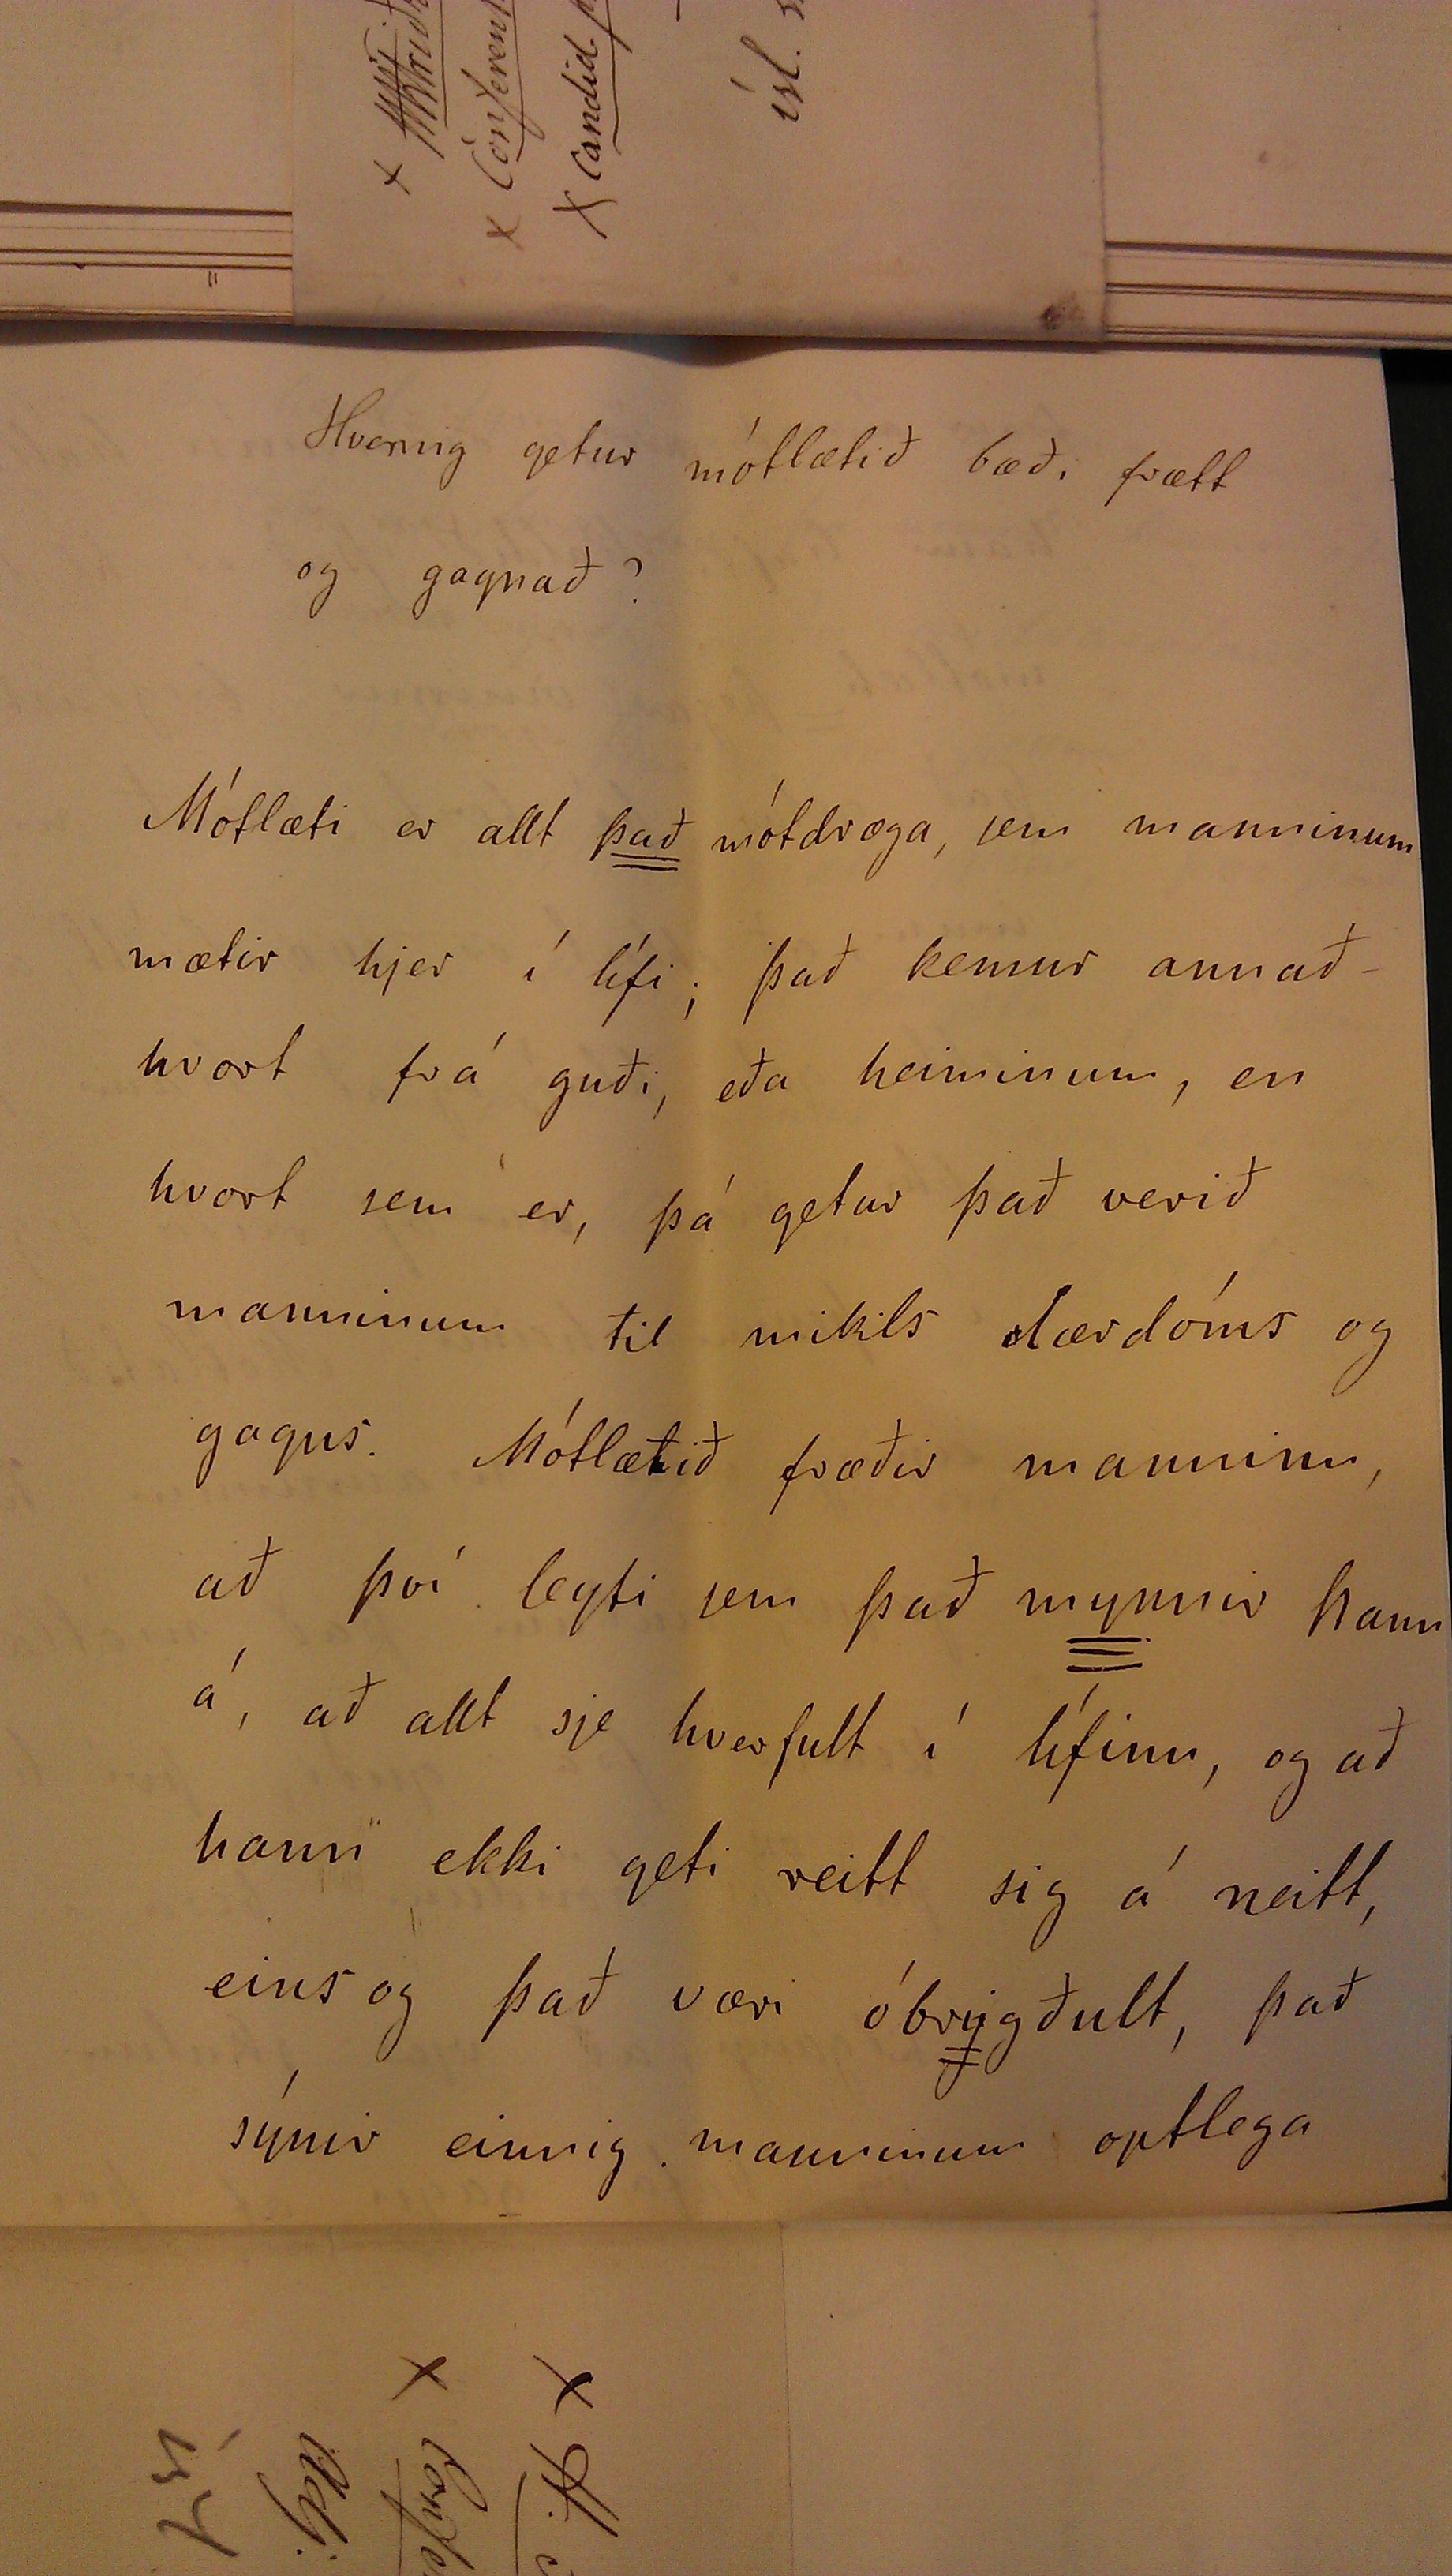 Hvernig getur mótlætið bæði frætt
og gagnað?
Mótlæti er allt það mótdræga, sem manninum
mætir hjer í lífi; það kemur annað-
hvort frá guði, eða heiminum, en
hvort sem er, þá getur það verið
manninum til mikils lærdóms og
gagns. Mótlætið fræðir manninn,
að því leyti sem það mynnir hann
á, að allt sje hverfult í lífinu, og að
hann ekki geti reitt sig á neitt,
eins og það væri óbrygðult, það
sýnir einnig manninum optlega
x
x Conferen
x Candid
ísl.
x
x
Adj.